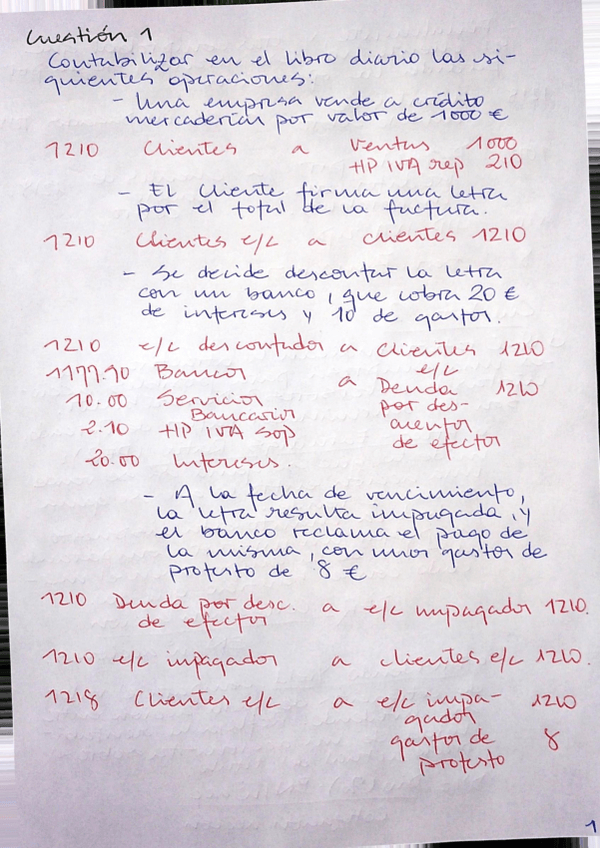 Cuestión 1
Contabilizar en el libro diario las si-
guientes operaciones:
- Una empresa vende a crédito
mercaderías por valor de 1000 €
1210 Clientes a Ventas 1000
HP IVA rep 210
- El cliente firma una letra
por el total de la factura.
1210 Clientes e/c a clientes 1210
- Se decide descontar la letra
con un banco, que cobra 20 €
de intereses y 10 de gastos.
1210 e/c descontados a Clientes 1210
e/c
1177.90 Bancos a Deuda 1210
10.00 Servicios por des-
Bancarios cuentos
2.10 HP IVA sop de efectos
20.00 Intereses.
- A la fecha de vencimiento,
la letra resulta impagada, y
el banco reclama el pago de
la misma, con unos gastos de
protesto de 8 €
1210 Deuda por desc. a e/c impagados 1210.
de efectos
1210 e/c impagados a clientes e/c 1210.
1218 Clientes e/c a e/c impa- 1210
gados
gastos de 8
protesto
1